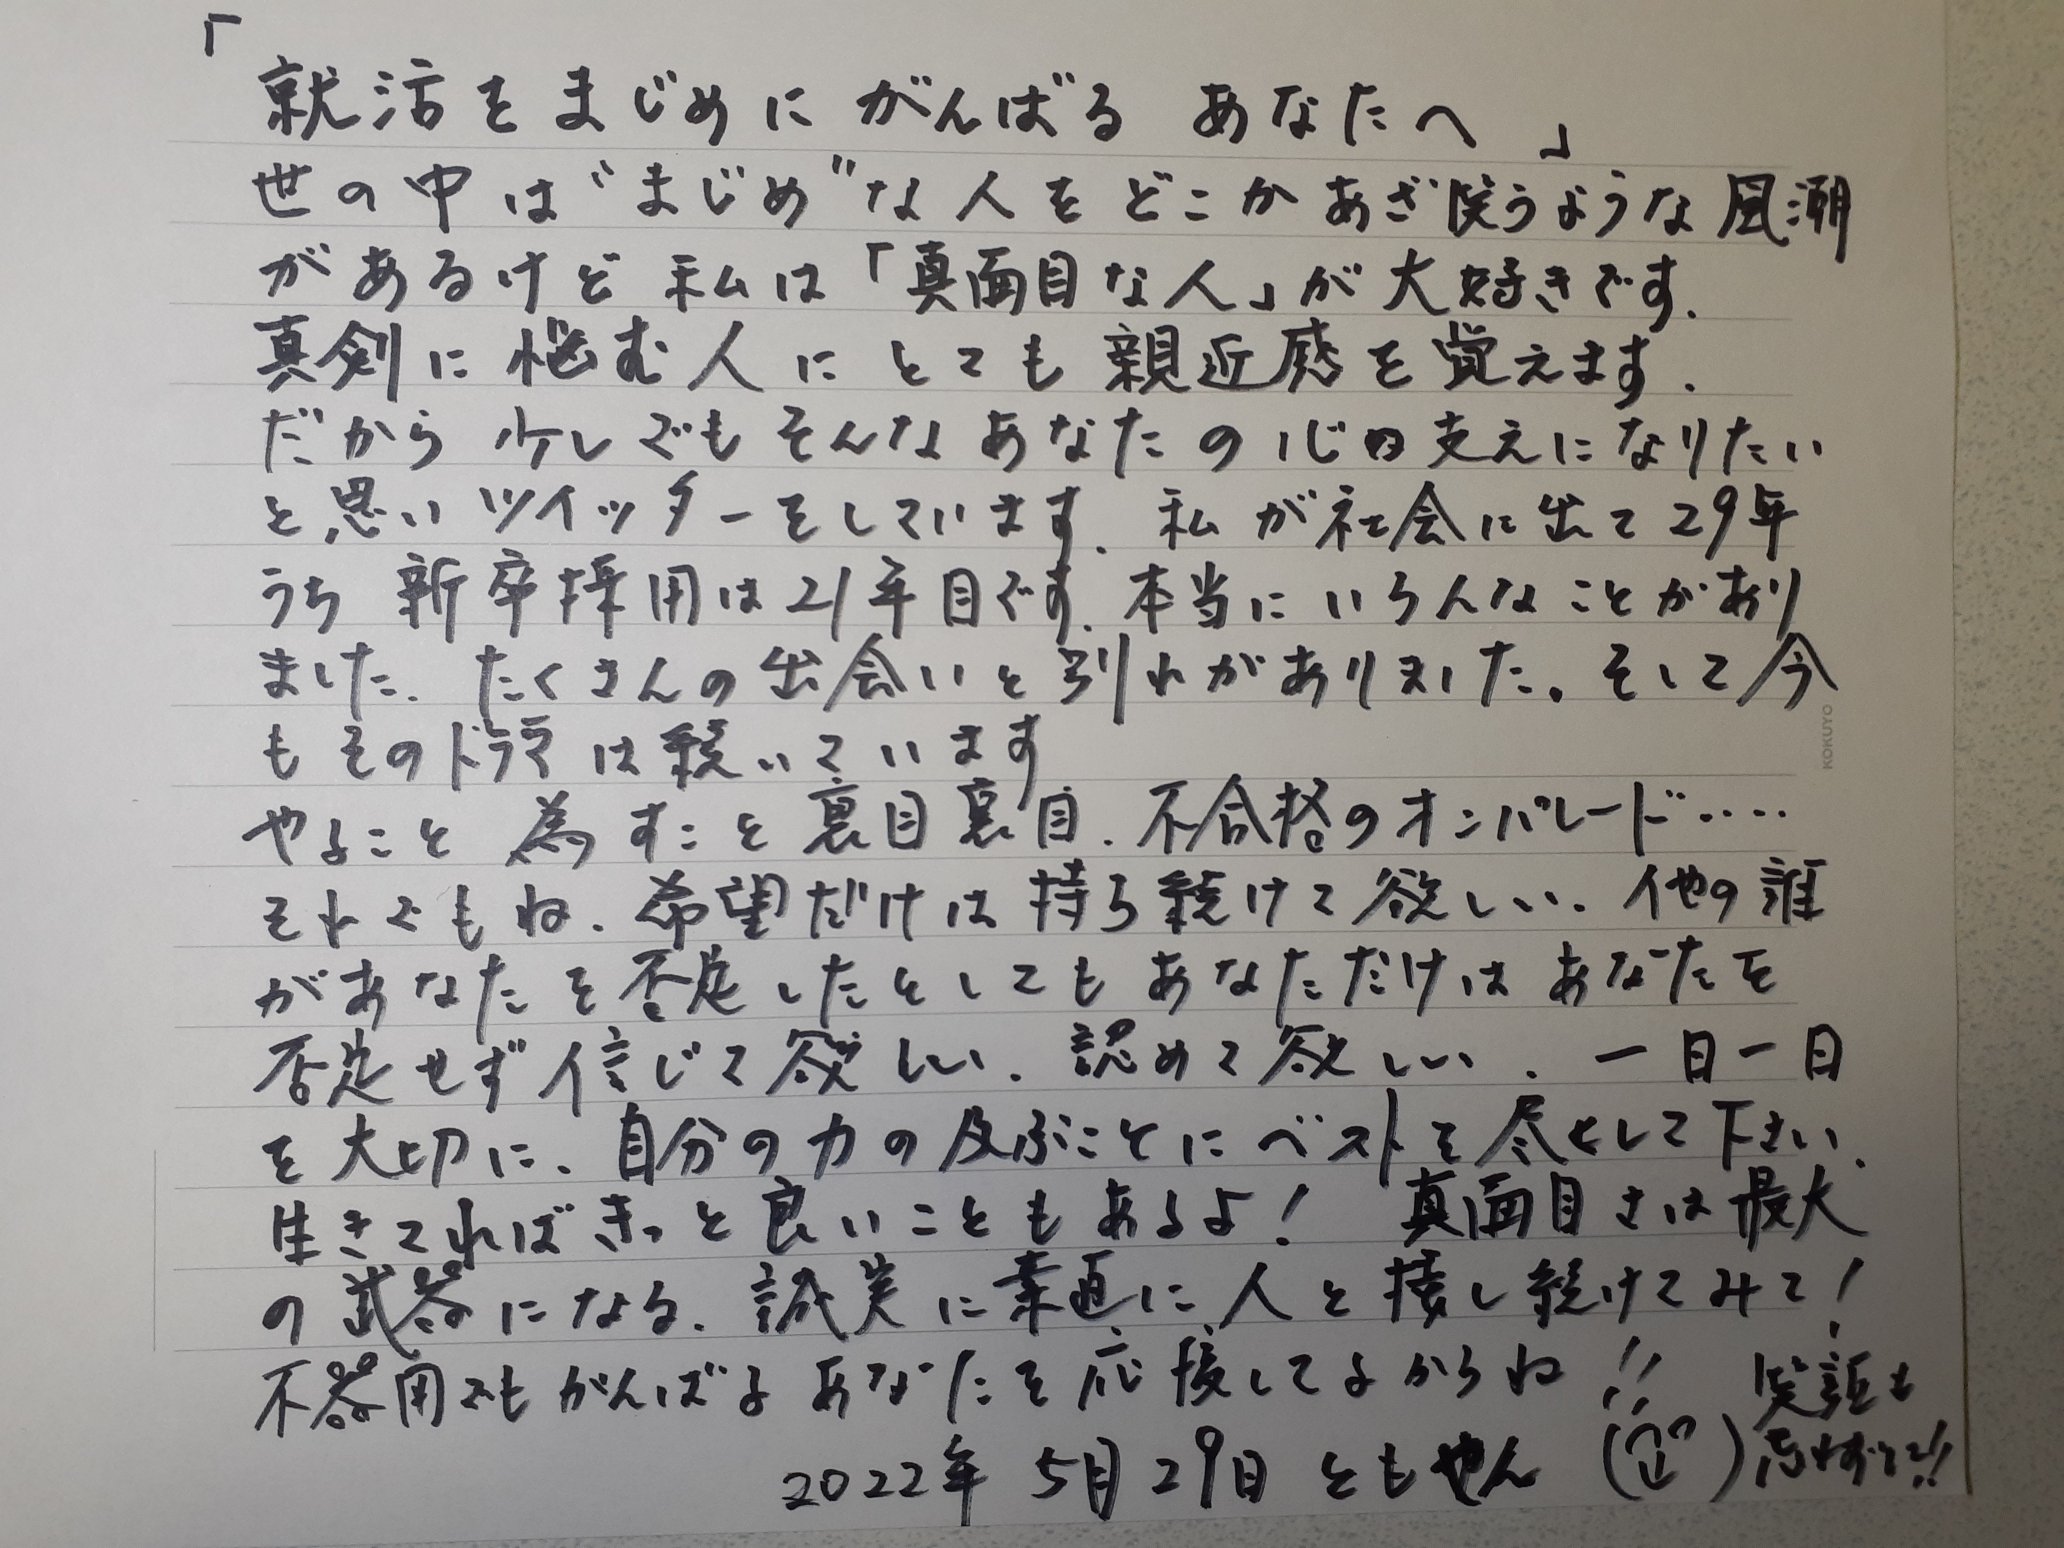 「就活をまじめにがんばる あなたへ」
世の中は“まじめ”な人をどこかあざ笑うような風潮
があるけど私は「真面目な人」が大好きです.
真剣に悩む人にとても親近感を覚えます.
だから少しでもそんなあなたの心の支えになりたい
と思いツイッターをしています. 私が社会に出て29年
うち新卒採用は21年目です. 本当にいろんなことがあり
ました. たくさんの出会いと別れがありました. そして今
もそのドラマは続いています
やること為すこと裏目裏目. 不合格のオンパレード・・・・
それでもね. 希望だけは持ち続けて欲しい. 他の誰
があなたを否定したとしてもあなただけはあなたを
否定せず信じて欲しい. 認めて欲しい. 一日一日
を大切に、自分の力の及ぶことにベストを尽くして下さい.
生きてればきっと良いこともあるよ! 真面目さは最大
の武器になる. 誠実に素直に人と接し続けてみて!
不器用でもがんばるあなたを応援してるからね!!
笑顔も
忘れずに!!
2022年 5月29日 ともやん
KOKUYO